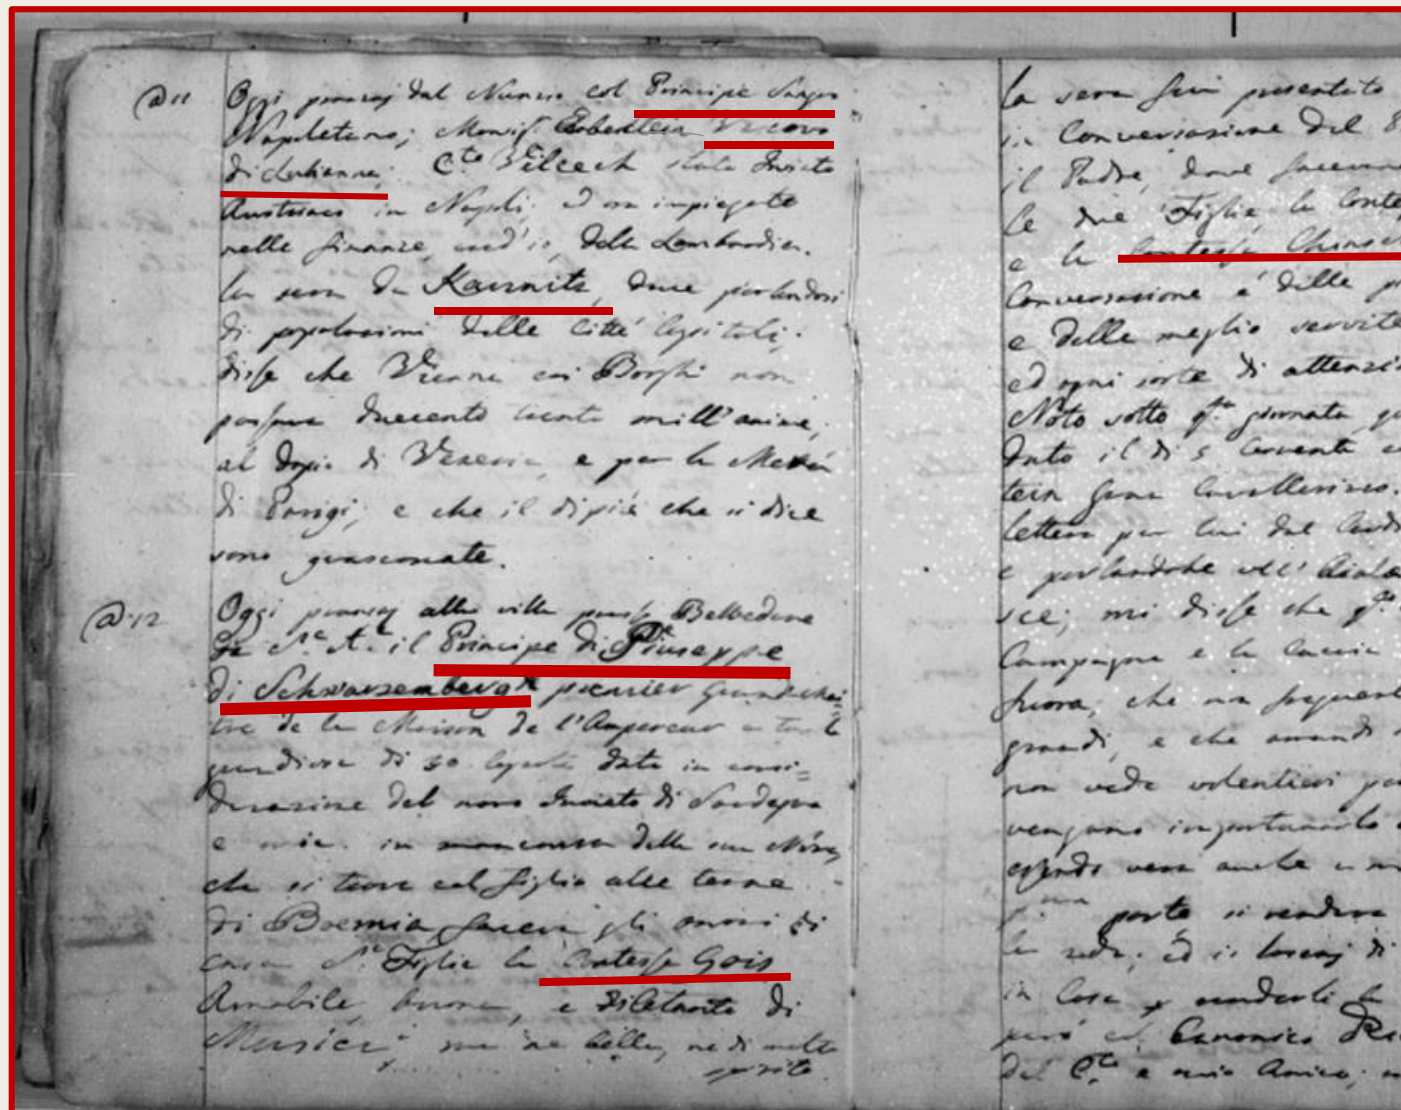 @ 11 Oggi pranzai dal Nunzio col Principe Sangro
Napoletano; Monsig. Erbestein Vescovo
di Lubiana. C.te Vilceck stato Inviato
Austriaco in Napoli, ed ora impiegato
nelle finanze, cred'io, della Lombardia.
la sera da Kaunitz, dove parlandosi
di popolazioni delle Città Capitali,
disse che Vienna coi Borghi non
passava duecento trenta mill'anime,
al dopio di Venezia, e per la Metà
di Parigi, e che il dipiù che si dice
sono guasconate.
@ 12 Oggi pranzai alla villa presso Belvedere
da S. A. il Principe di Giuseppe
di Schwarzemberg premier Grandmai=
tre de la Maison de l'Empereur a tavola
grandiosa di 30 coperti data in consi=
derazione del novo Inviato di Sardegna
e mia. in mancanza della sua Nóra,
che si trova col figlio alle terme
di Boemia faceva gli onori di
casa S. Figlia la Contessa Gois
Amabile, buona, e diletante di
Musica; ma ne bella, ne di molto
spirito.
la sera fui presentato
in Conversazione del
il Padre, dove facevano
le due Figlie la Conte
e la Contessa Chinsc
Conversazione é delle
e delle meglio servite
ed ogni sorte di attenzi
Noto sotto q.ta giornata
dato il di 5 corrente
tein gran Cavallerizzo.
lettera per lui dal
e parlandole
sce; mi disse che q.
Campagna e la caccia
fuora, che non frequent
grandi, e che amando
non vede volentieri
vengano importunarlo
essendo vera anche
parte si rendeva
in Casa
peró col Canonico
del C.te e mio Amico;